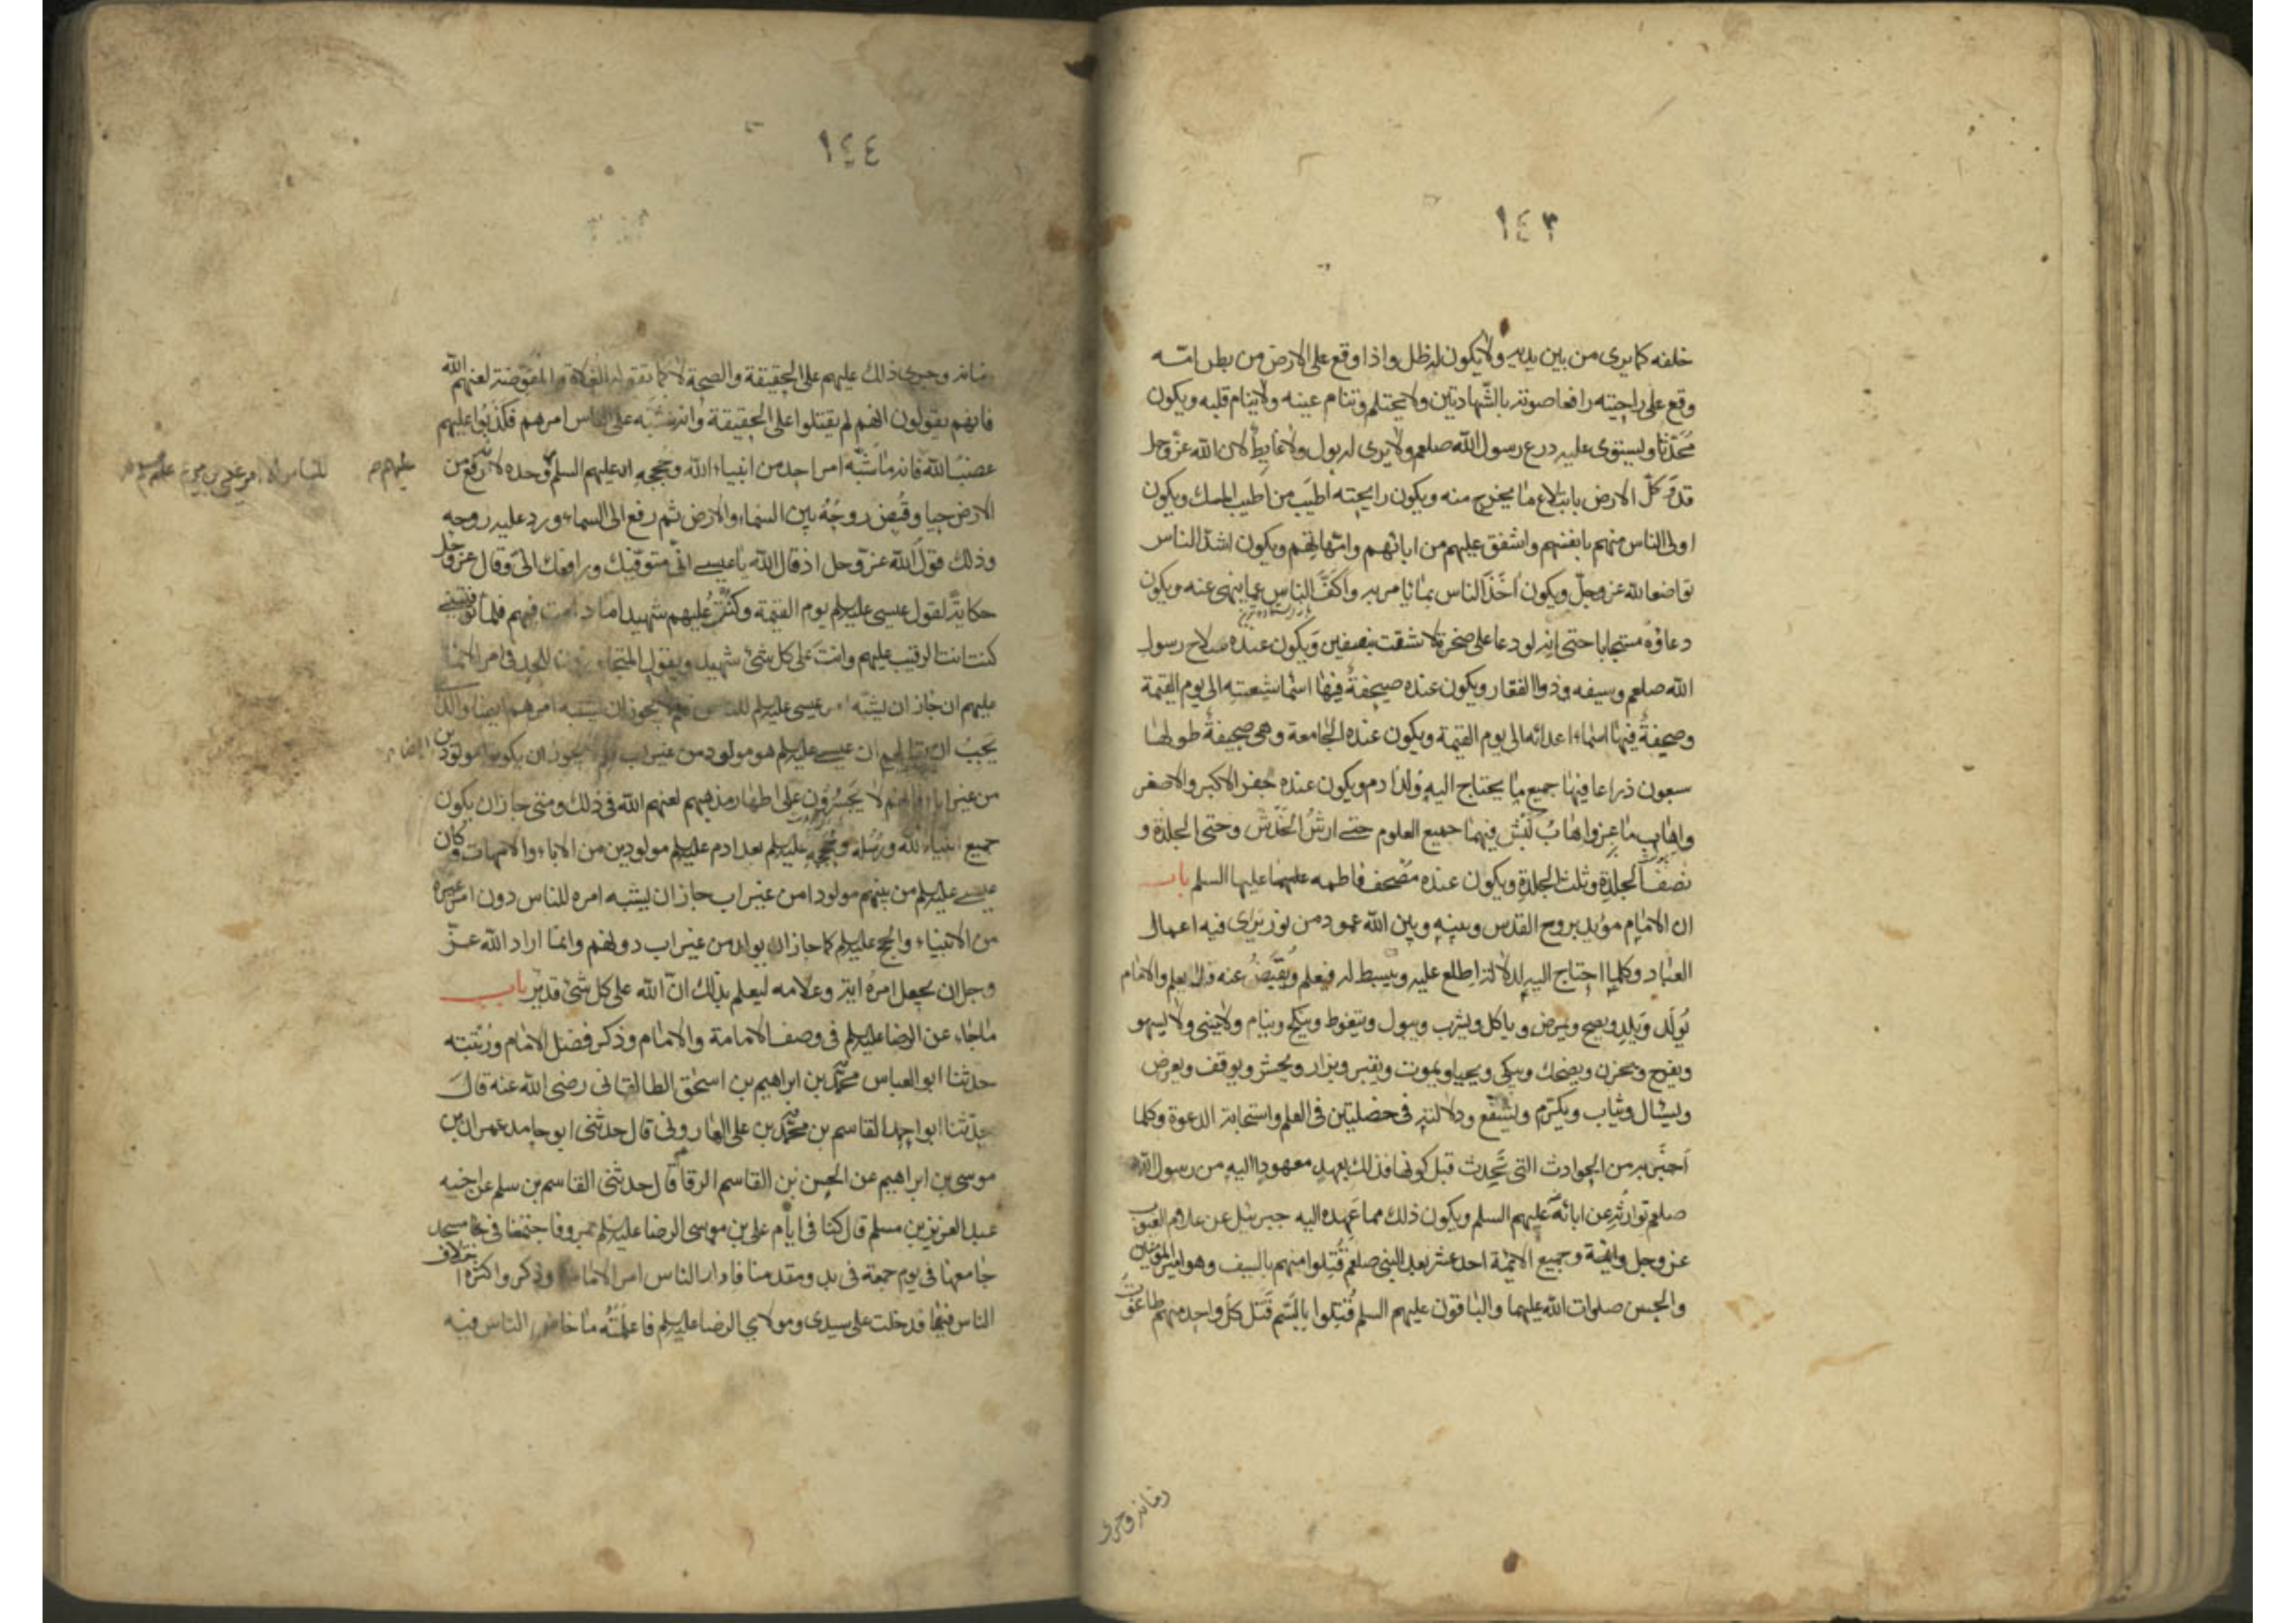 ١٤٣
خلفه كما يرى من بين يديه ولا يكون له ظل واذا وقع على الارض من بطن امّه
وقع على راحتيه رافعا صوته بالشّهادتين ولا يحتلم وتنام عينه ولا ينام قلبه ويكون
مُحَدّثا ويستوى عليه درع رسول الله صلعم ولا يرى له بول ولا غايط لان الله عزّ وجل
قد وكّل الارض بابتلاع ما يخرج منه ويكون رايحته اطيَب من اطيب المسك ويكون
اولى الناس منهم بانفسهم واشفق عليهم من ابائهم وامّهاتهم ويكون اشدّ الناس
تواضعا لله عز وجلّ ويكون اخَذ الناس بما يامر به واكفَّ الناس عما ينهى عنه ويكون
دعاؤه مستجابا حتى انه لو دعا على صخرة لانشقت بنصفين ويكون عنده سلاح رسول
الله صلعم وسيفه ذو الفقار ويكون عنده صحيفةٌ فيها اسما شيعته الى يوم القيمة
وصحيفةٌ فيها اسماء اعدائه الى يوم القيمة ويكون عنده الجامعة وهى صحيفةٌ طولها
سبعون ذراعا فيها جميع ما يحتاج اليه ولد ادم ويكون عنده جفر الاكبر والاصغر
واهاب ماعز واهابُ كَبْش فيهما جميع العلوم حتى ارشُ الخَدْش وحتى الجلدة و
نصف الجلدة وثلث الجلدة ويكون عنده مصحف فاطمه عليها السلم باب
ان الامام مؤيد بروح القدس وبينه وبين الله عمود من نور يَرَى فيه اعمال
العباد وكلما احتاج اليه لدلالة اطلع عليه ويبسط له فيعلم ويُقبَضُ عنه فلا يعلم والامام
يُولَد ويَلِد ويصح ويمرض وياكل ويشرب ويبول ويتغوط وينكح وينام ولا ينسى ولا يسهو
ويفرح ويحزن ويضحك ويبكى ويحيا ويموت ويقبر ويزار ويحشر ويوقف ويعرض
ويسال ويثاب ويكرّم ويشفّع ودلالته فى خصلتين فى العلم واستجابة الدعوة وكلما
اَخبَر به من الحوادث التى تَحدث قبل كونها فذلك بعهد معهود اليه من رسول الله
صلعم توارثه عن ابائه عليهم السلم ويكون ذلك مما عَهِده اليه جبرئيل عن علام الغيوب
عز وجل وجميع الائمة احد عشر بعد النبى صلعم قُتِلوا منهم بالسيف وهو امير المؤمنين
والحسين صلوات الله عليهما والباقون عليهم السلم قُتِلوا بالسّم قَتَل كل واحد منهم طاغوت
زمانه وجرى
١٤٤
زمانه وجرى ذلك عليهم على الحقيقة والصحة لا كما تقوله الغلاة والمفوّضة لعنهم الله
فانهم يقولون انهم لم يقتلوا على الحقيقة وانه شبّه على الناس امرهم فكذبوا عليهم
غضب الله فانه ما شُبّه امر احد من انبياء الله وحججه عليهم السلم وحده لانه رُفِع من
للناس الا امر عيسى بن مريم
الارض حيا وقُبِض روحُهُ بين السماء والارض ثم رفع الى السماء ورد عليه روحه
وذلك قول الله عز وجل اذ قال الله يا عيسى انّى متوفّيك ورافعك الىّ وقال عز وجل
حكاية لقول عيسى عليه السلم يوم القيمة وكنتُ عليهم شهيدا ما دمت فيهم فلما توفّيتنى
كنت انت الرقيب عليهم وانت على كل شىء شهيد ويقول المتجاوزون للحد فى امر الائمة
عليهم ان جاز ان يشبّه امر عيسى عليه السلم للناس فلم لا يجوز ان يشتبه امرهم ايضا والذى
يَجبُ ان يقال لهم ان عيسى عليه السلم هو مولود من غير اب فلم لا يجوز ان يكونوا مولودين
من غير اباء فانهم لا يَجسُرون على اظهار مذهبهم لعنهم الله فى ذلك ومتى جاز ان يكون
جميع انبياء الله ورُسُله وحُججه عليه السلم بعد ادم عليه السلم مولودين من الاباء والامهات وكان
عيسى عليه السلم من بينهم مولودا من غير اب جاز ان يشتبه امره للناس دون امر غيره
من الانبياء والحجج عليه السلم كما جاز ان يولد من غير اب دونهم وانما اراد الله عزّ
وجل ان يجعل امرهُ اية وعلامه ليعلم بذلك انّ الله على كل شىء قدير باب
ما جاء عن الرضا عليه السلم فى وصف الامامة والامام وذكر فضل الامام ورُتبته
حدثنا ابو العباس محمّد بن ابراهيم بن اسحق الطالقانى رضى الله عنه قالَ
حدّثنا ابو احمد القاسم بن محمّد بن على الهارونى قال حدثنى ابو حامد عمران بن
موسى بن ابراهيم عن الحسن بن القاسم الرقام قال حدثنى القاسم بن مسلم عن اخيه
عبد العزيز بن مسلم قال كنا فى ايام على بن موسى الرضا عليه السلم بمرو فاجتمعنا فى مسجد
جامعها فى يوم جمعة فى بدو مقدمنا فادار الناس امر الامامة وذكروا كثرة اختلاف
الناس فيها فدخلت على سيدى ومولاي الرضا عليه السلم فاعلمتُه ما خاض الناس فيه